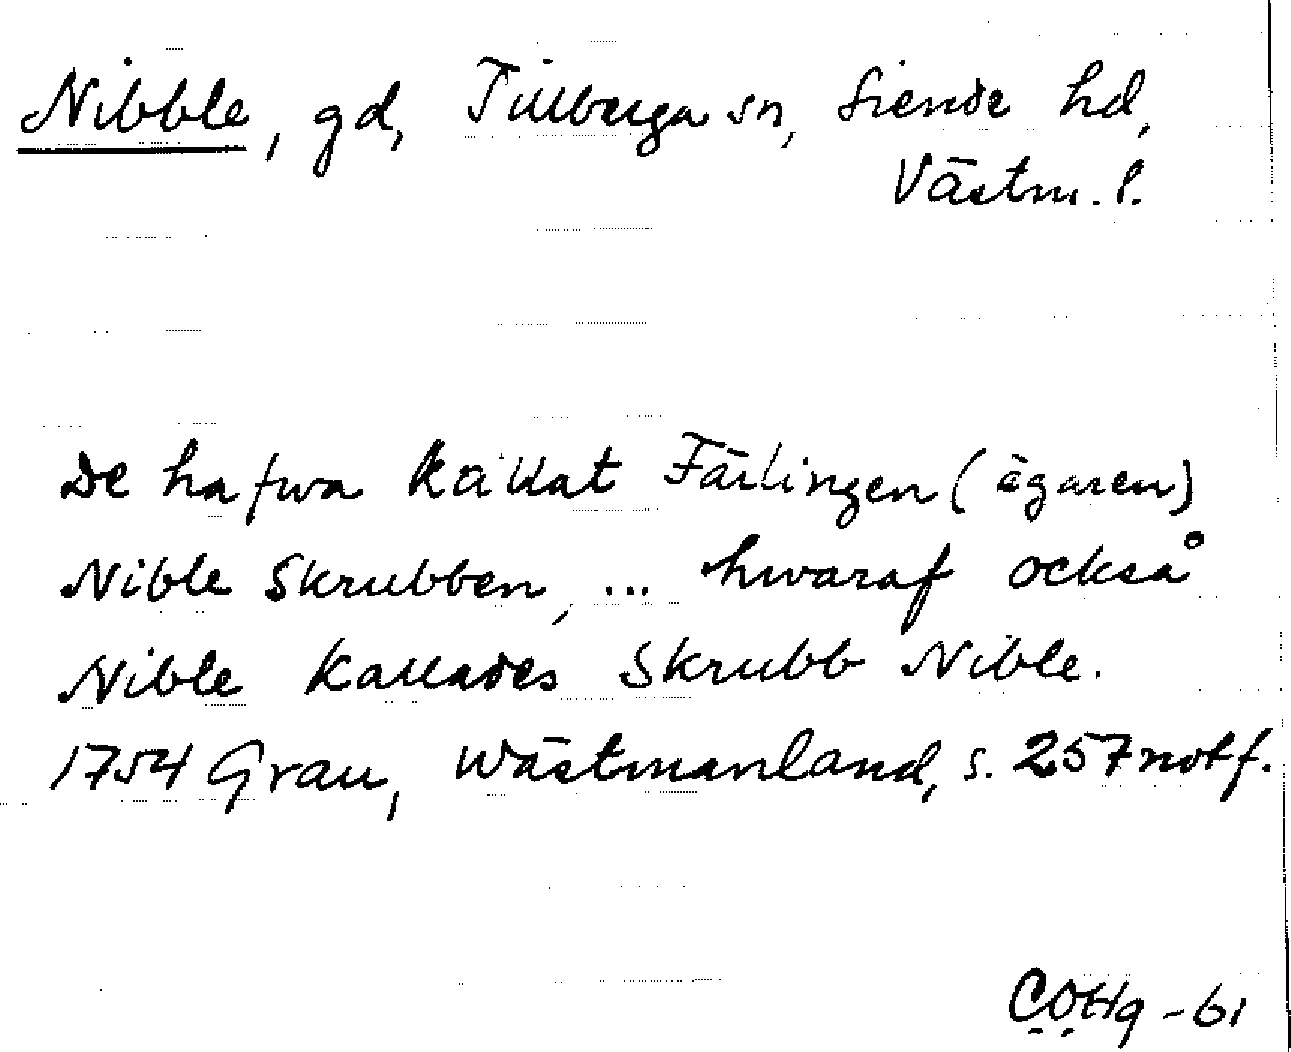 Nibble, gd, Tillberga sn, Siende hd,
Västm. l.
De hafwa kallat Färlingen (ägaren)
Nible Skrubben, ... hwaraf också
Nible kallades Skrubb Nible.
1754 Grau, Wästmanland, s. 257 notf.
-61